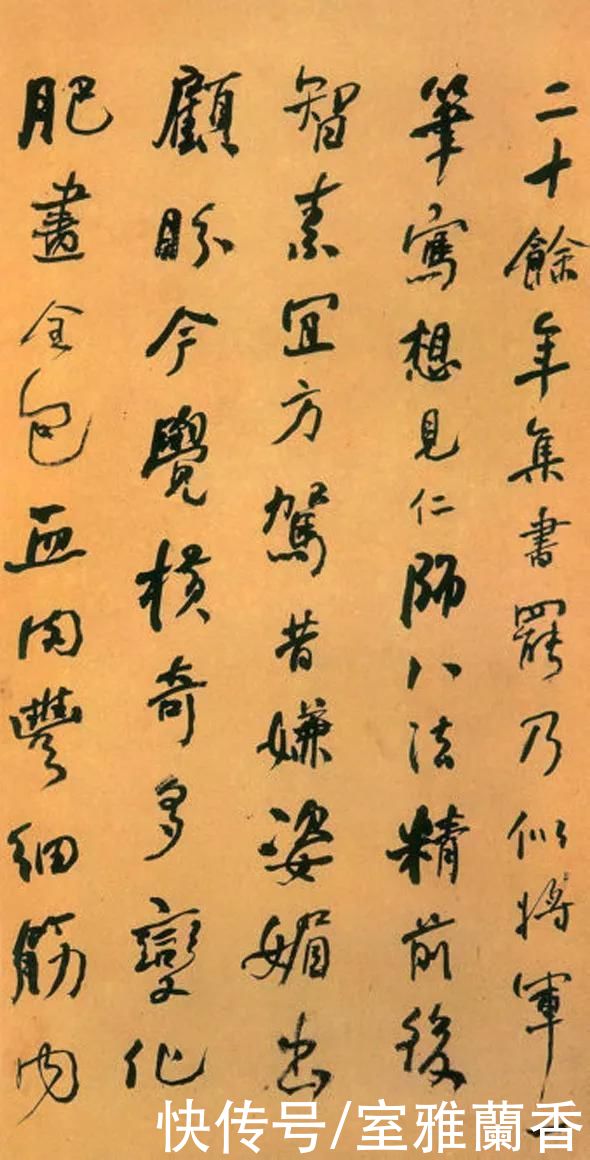 二十餘年集書罷乃似將軍一
筆寫想見仁師八法精前後
智素宜方駕昔嫌姿媚出
顧盼今覺橫奇多變化
肥畫全包血肉豐細筋內
快传号/室雅蘭香